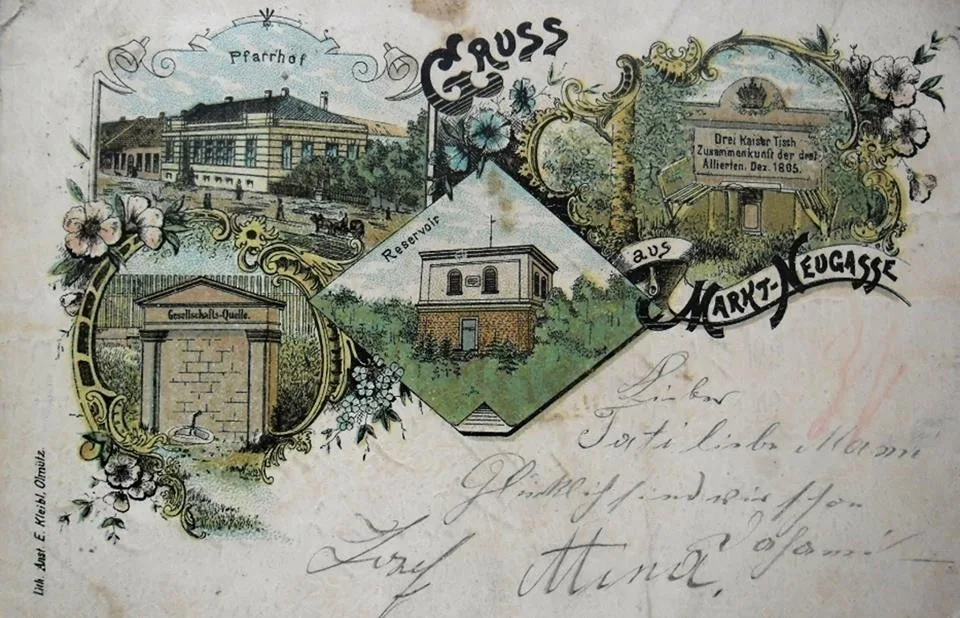 Pfarrhof
GRUSS
aus
MARKT-NEUGASSE
Drei Kaiser Tisch
Zusammenkunft der drei
Allierten. Dez. 1805.
Reservoir
Gesellschafts-Quelle.
Lieber
Tati liebe Mami
Glücklich sind wir schon
Josef Mina.
Lith. Anst. E. Kleibl, Olmütz.